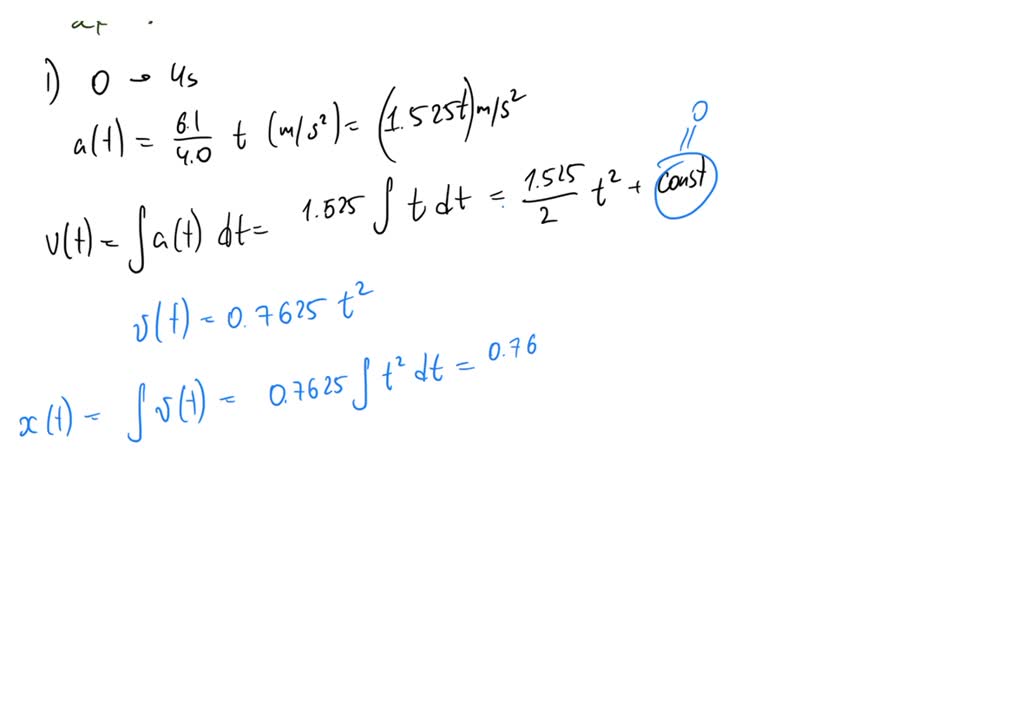 1) 0 → 4s
a(t) = 6.1/4.0 t (m/s²) = (1.525t) m/s²
0
=
v(t) = ∫a(t) dt = 1.525 ∫ t dt = 1.525/2 t² + const
v(t) = 0.7625 t²
x(t) = ∫ v(t) = 0.7625 ∫ t² dt = 0.76